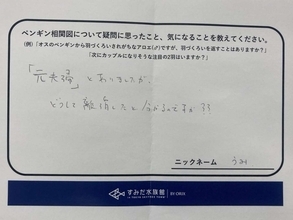 ペンギン相関図について疑問に思ったこと、気になることを教えてください。
(例)「オスのペンギンから羽づくろいされがちなアロエ(♂)ですが、羽づくろいを返すことはありますか?」
「次にカップルになりそうな注目の2羽はいますか?」
「元夫婦」とありましたが、
どうして離婚したと分かるのですか??
ニックネーム
すみだ水族館